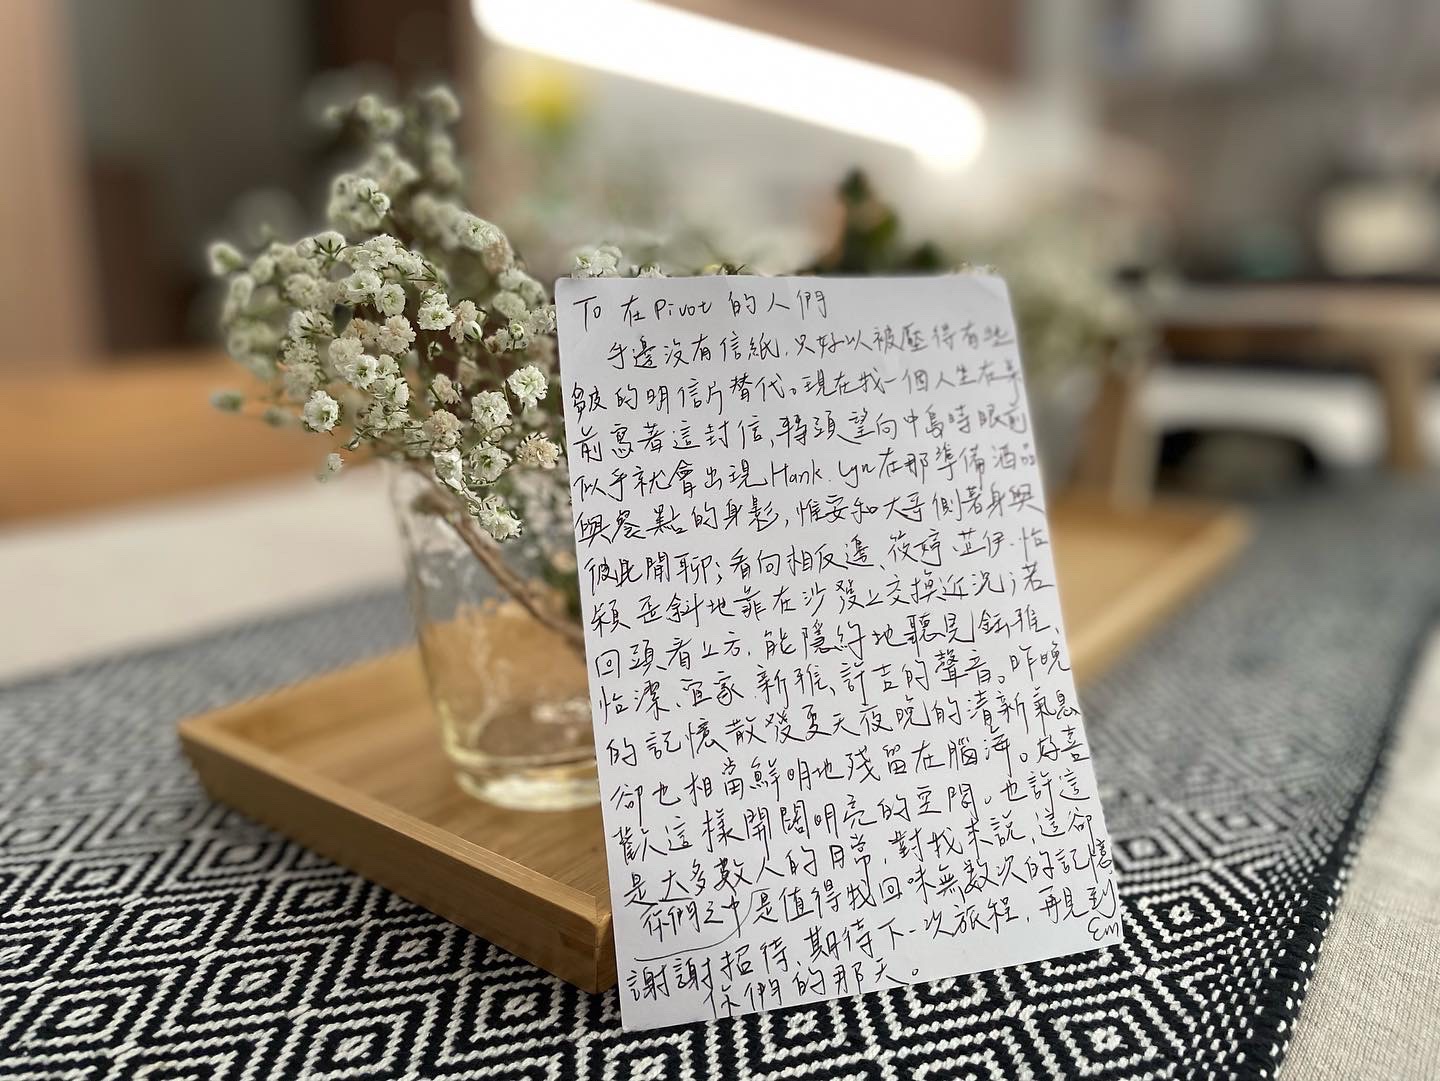 To 在Pivot 的人們
手邊沒有信紙，只好以被壓得有些
皺的明信片替代。現在我一個人坐在桌
前寫著這封信，轉頭望向中島時眼前
似乎就會出現Hank、Lyn在那準備酒品
與餐點的身影，惟安和大哥側著身與
彼此閒聊；看向相反邊、筱婷、芷伊、怡
穎歪斜地靠在沙發上交換近況；若
回頭看上方，能隱約地聽見鈺雅、
怡潔、宜家、新雅、許吉的聲音。昨晚
的記憶散發夏天夜晚的清新氣息
卻也相當鮮明地殘留在腦海。好喜
歡這樣開闊明亮的空間。也許這
是大多數人的日常，對我來說，這卻
你們之中 是值得我回味無數次的記憶
謝謝招待、期待下一次旅程，再見到
你們的那天。
Em